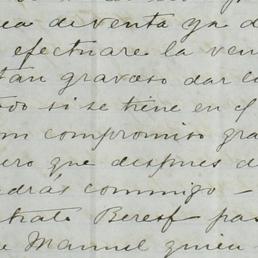 de venta ya d
efectuare la ven
tan gravoso dar c
si se tiene en el
compromiso gra
ero que despues d
drás commigo -
trato Beresf pas
e Manuel quien